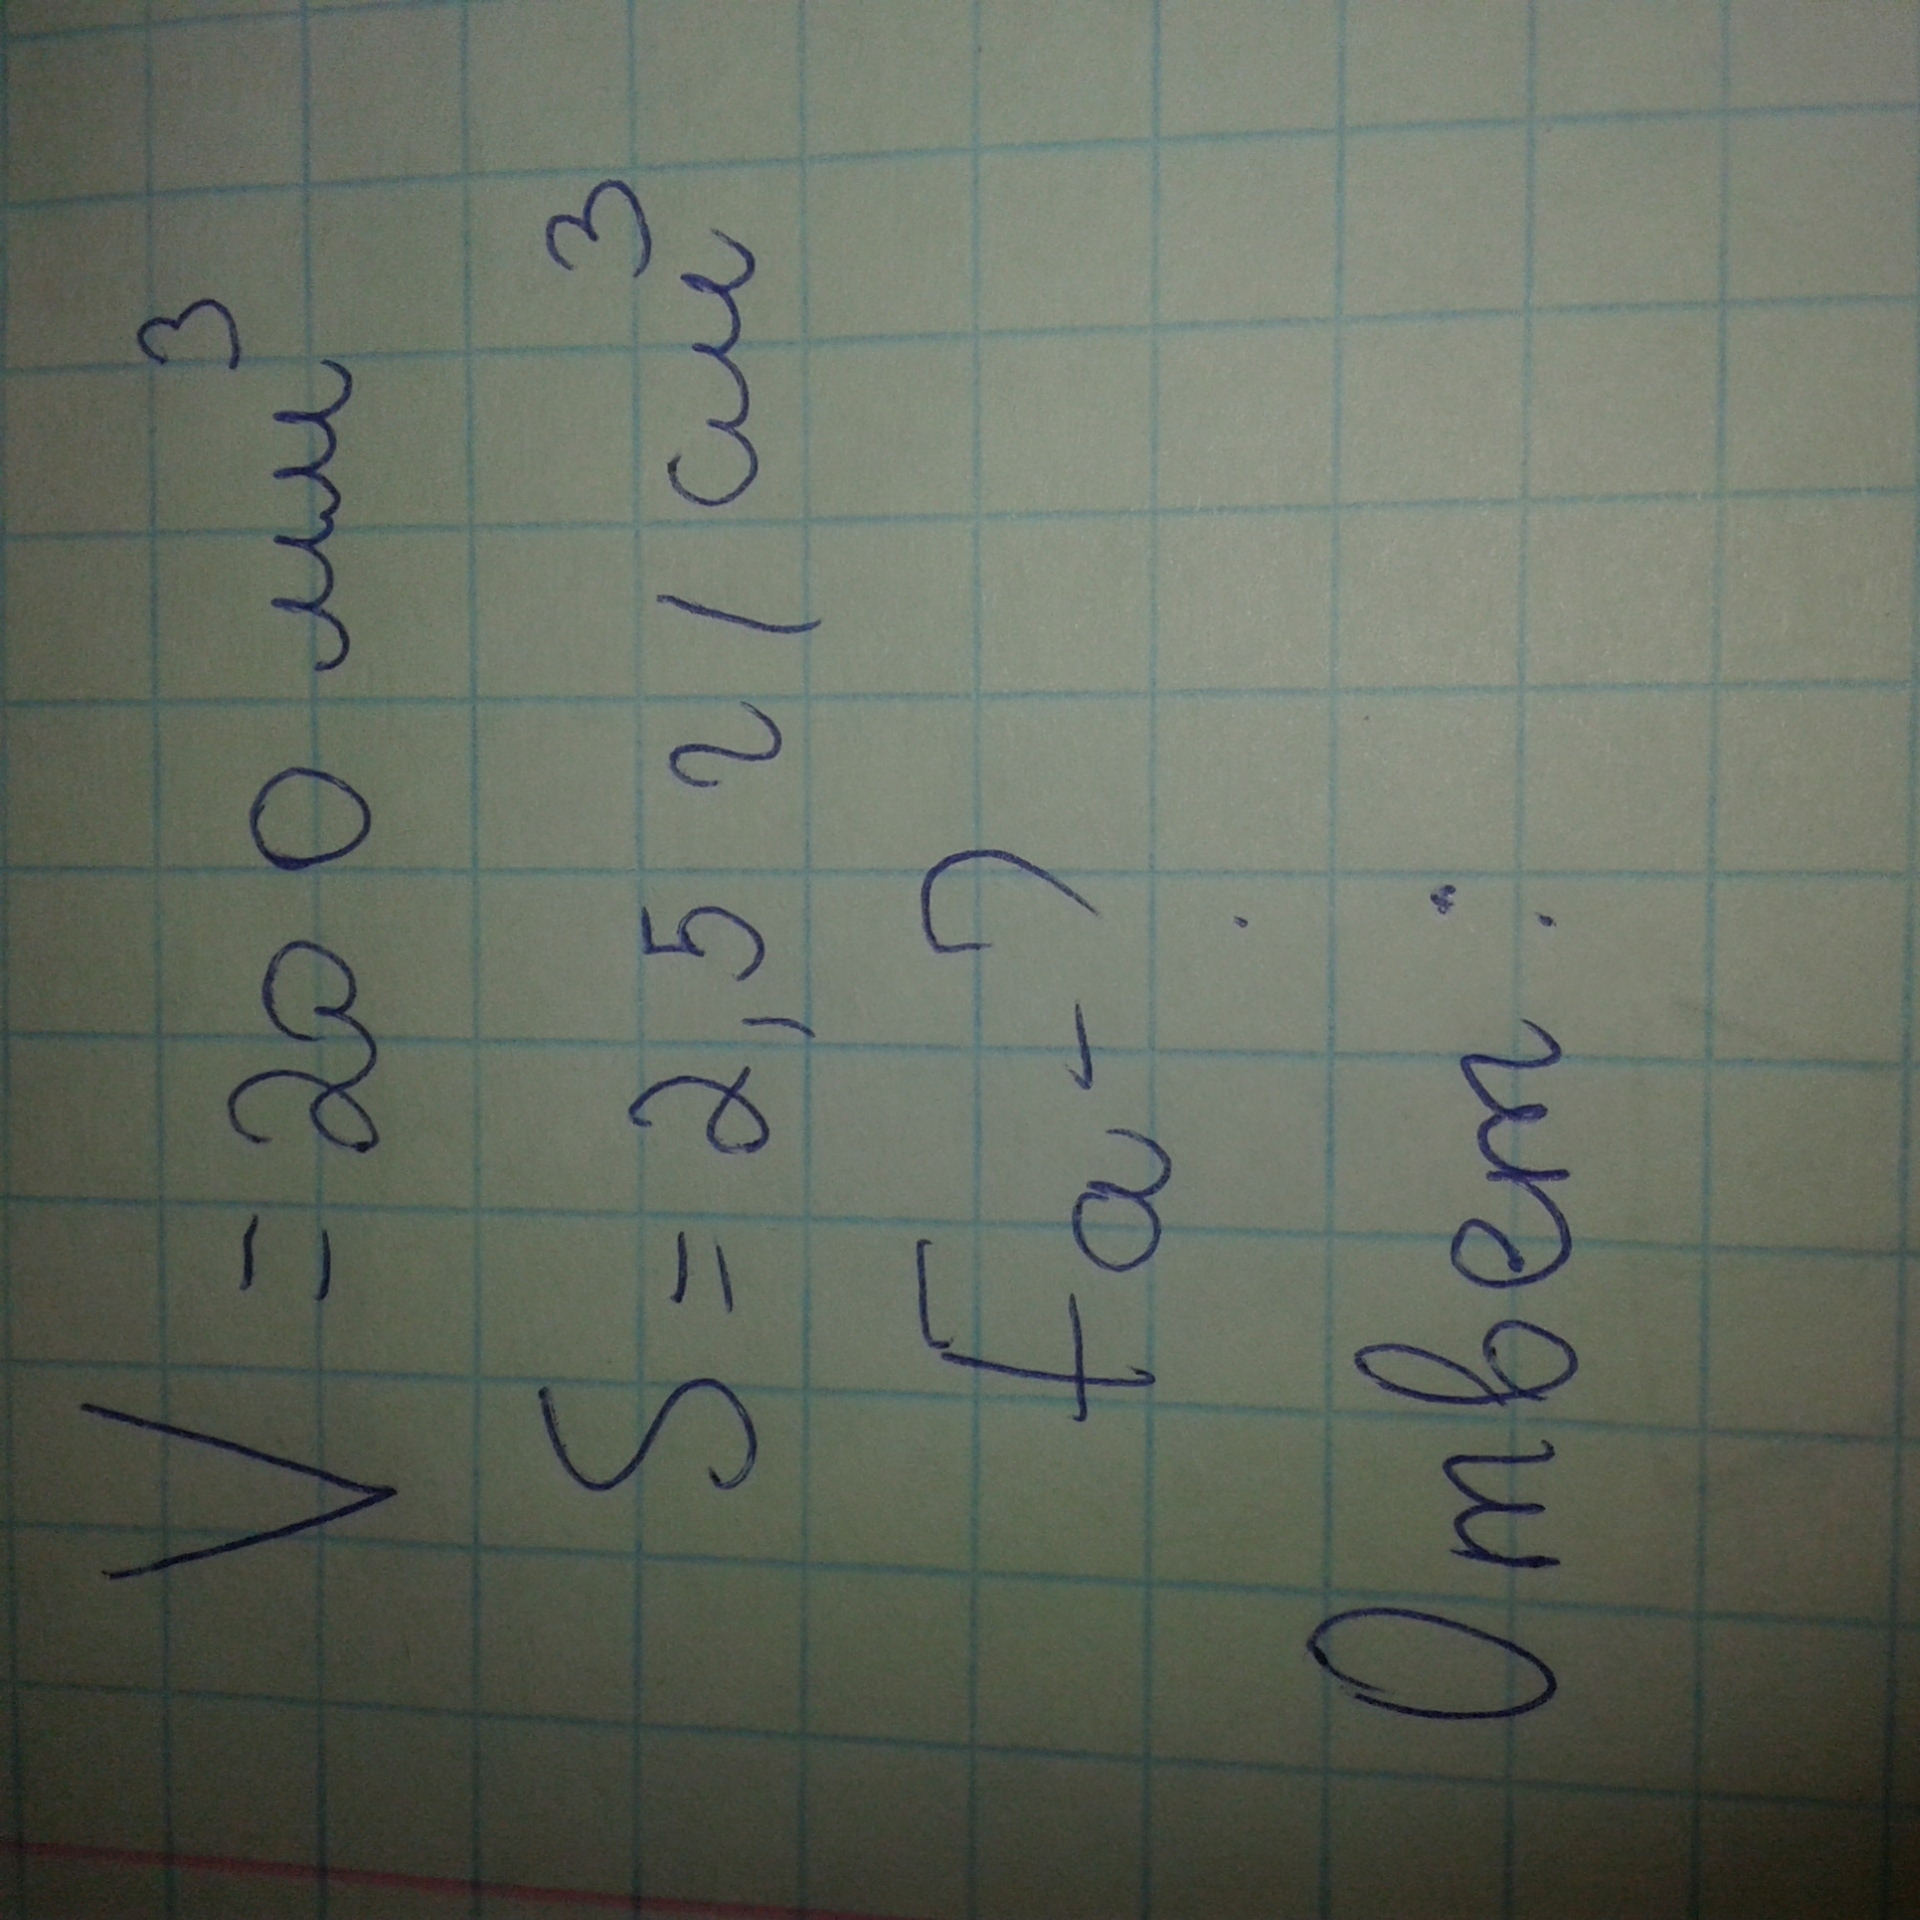 V = 200 мм³
S = 2,5 г / см³
Fa - ?
Ответ: